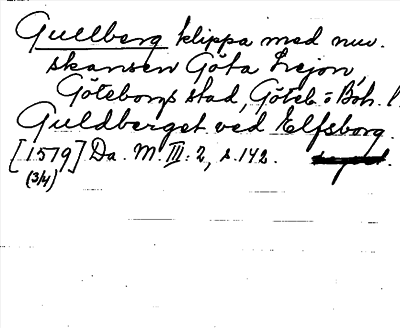 Gullberg klippa med nuv.
skansen Göta Lejon,
Göteborgs stad, Göteb. o Boh. l.
Guldberget ved Elfsborg.
[1579] Da. M. III: 2, s. 142.
(3/4)